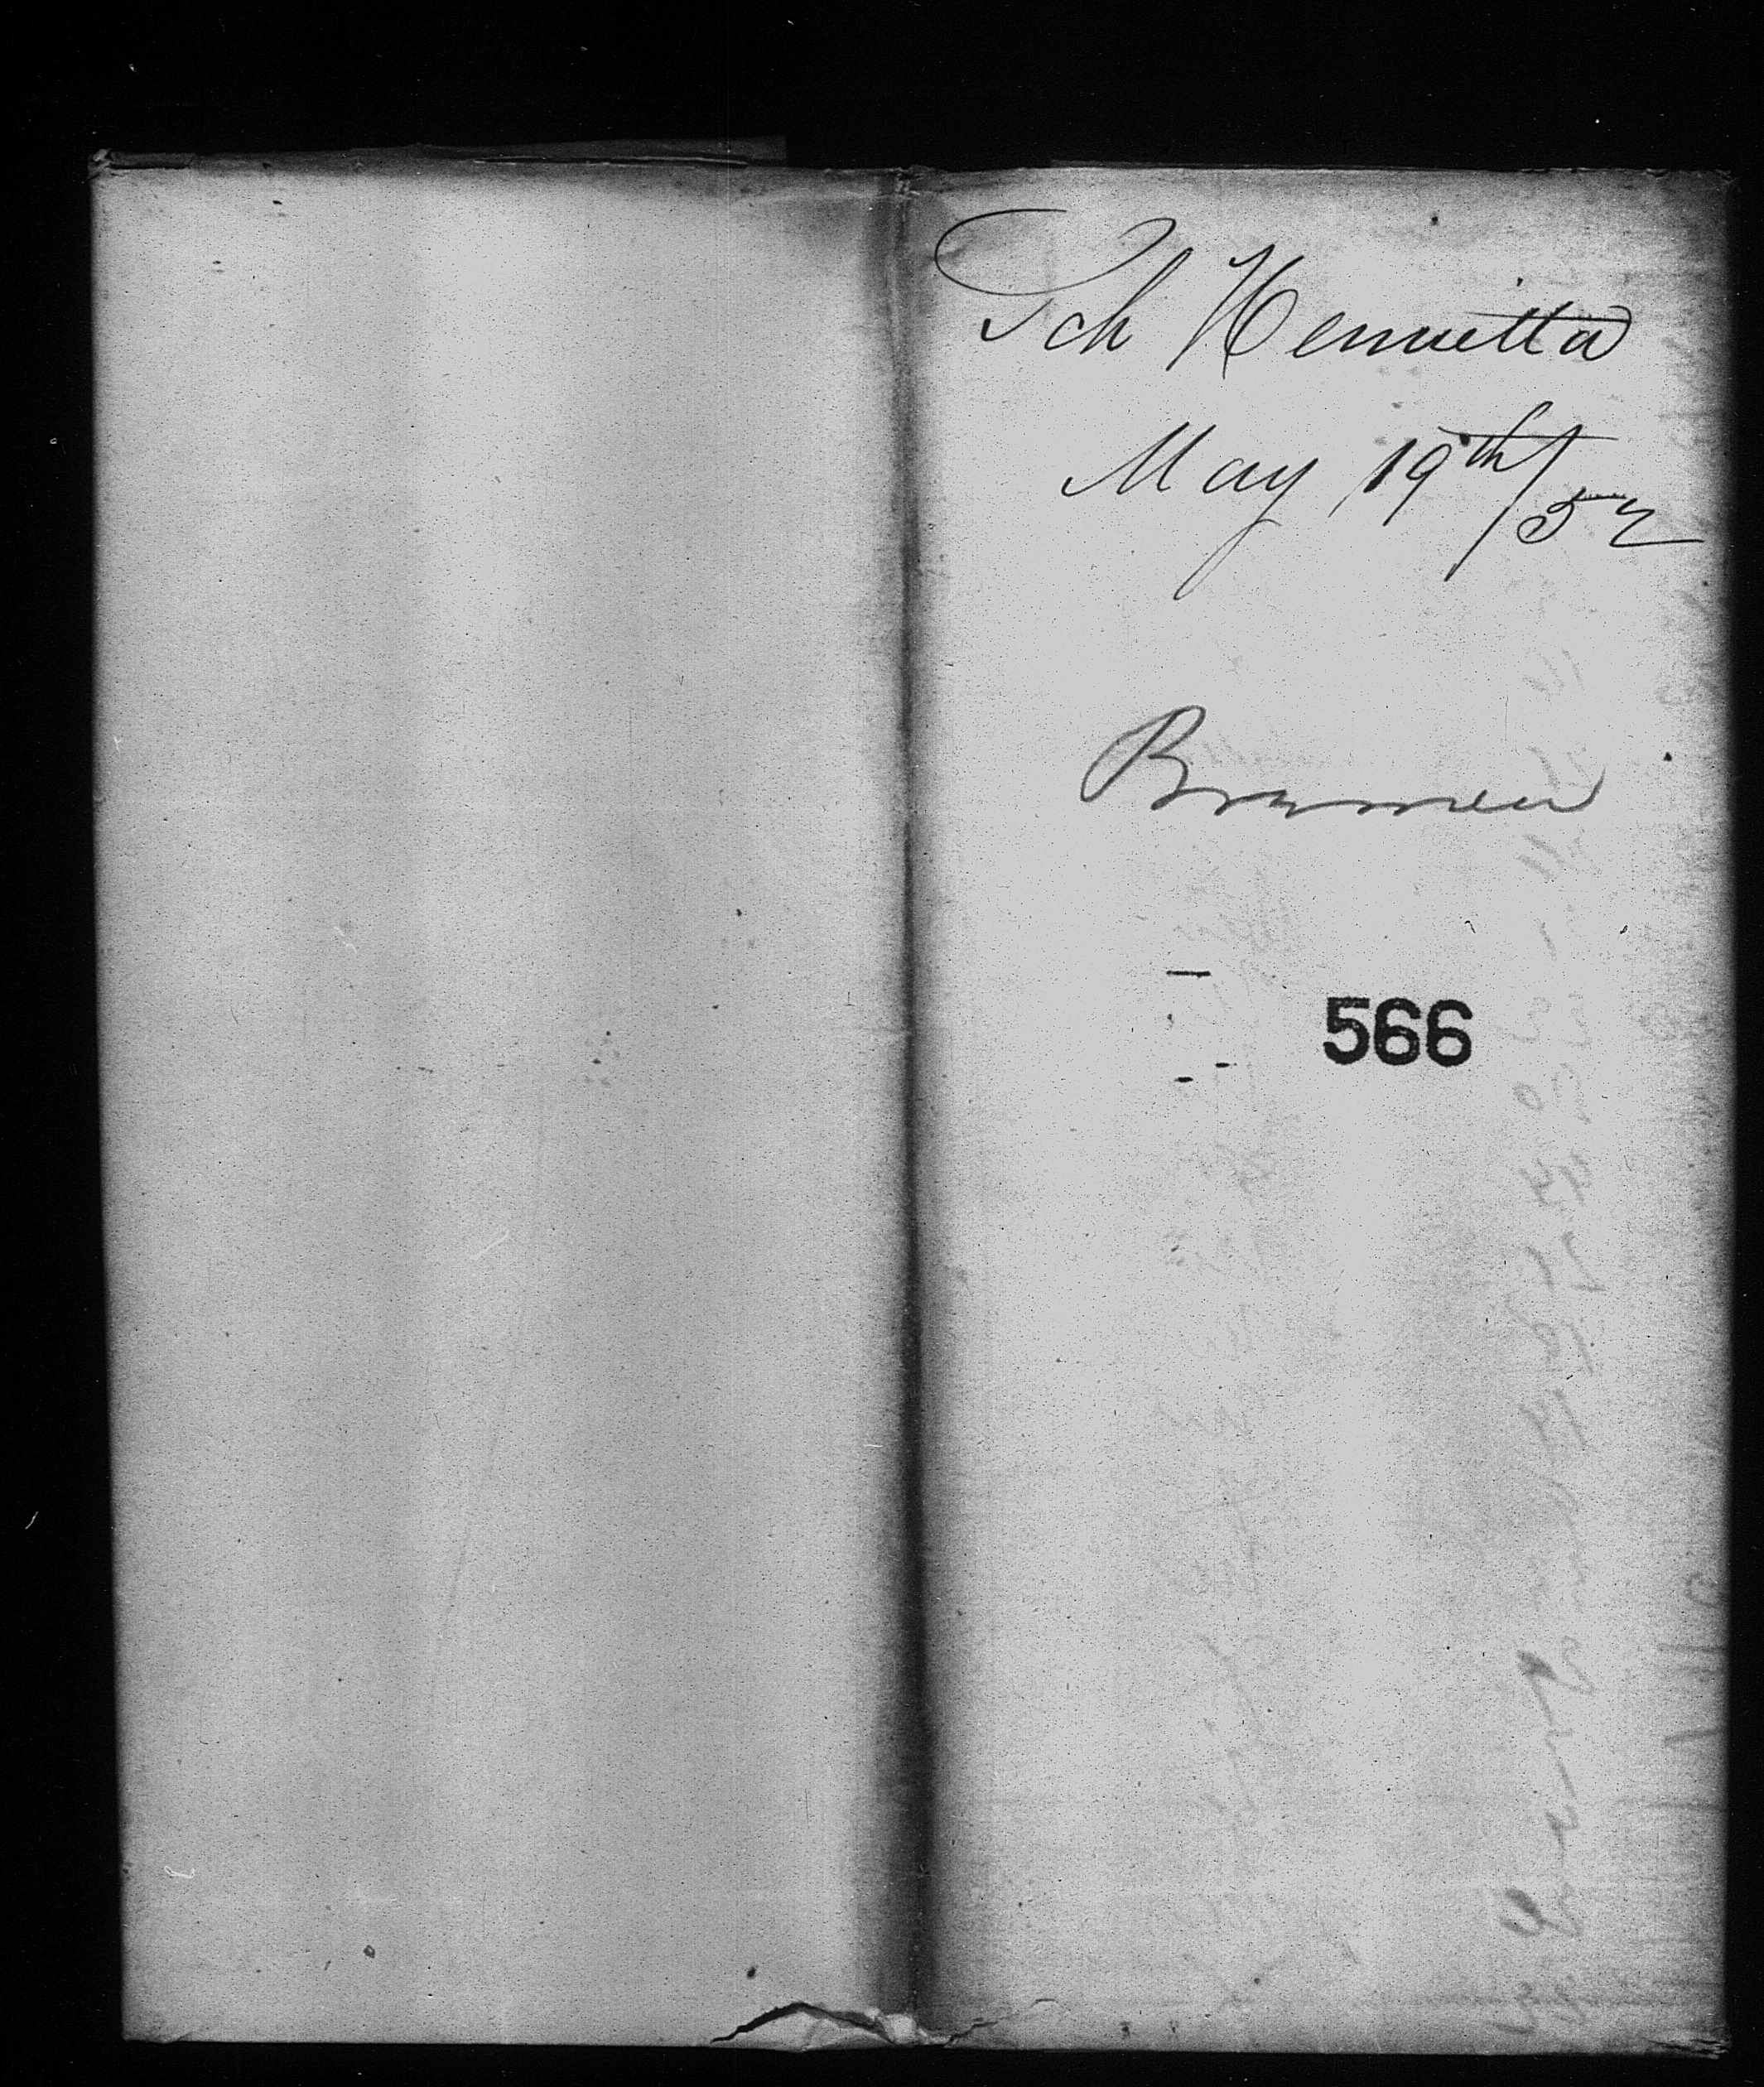 Sch Henrietta
May 19th/52
Bremen
566